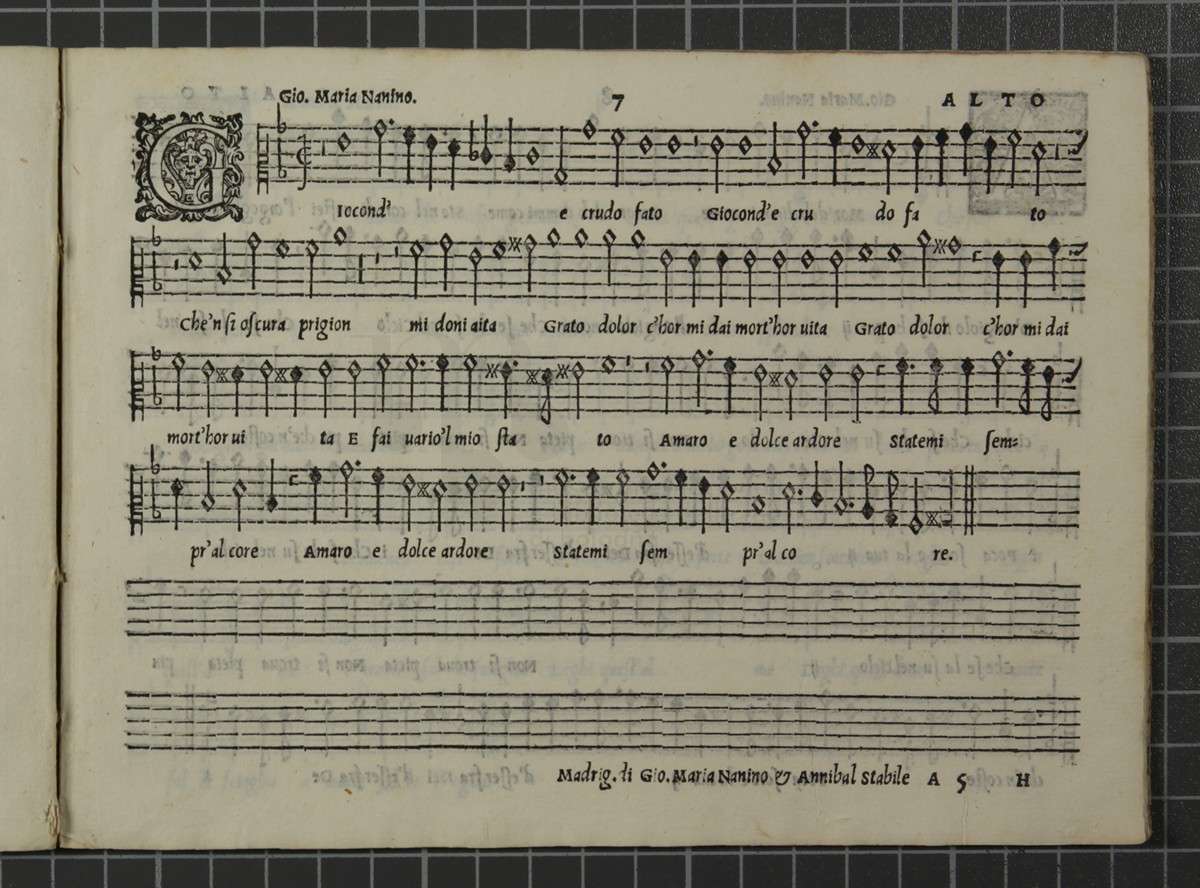 Gio. Maria Nanino. 7 ALTO
GIocond' e crudo fato Giocond'e cru do fa to
Che'n si oscura prigion mi doni aita Grato dolor c'hor mi dai mort'hor uita Grato dolor c'hor mi dai
mort'hor ui ta E fai uario'l mio sta to Amaro e dolce ardore Statemi sem=
pr'al core Amaro e dolce ardore Statemi sem pr'al co re.
Madrig. di Gio. Maria Nanino & Annibal Stabile A 5 H